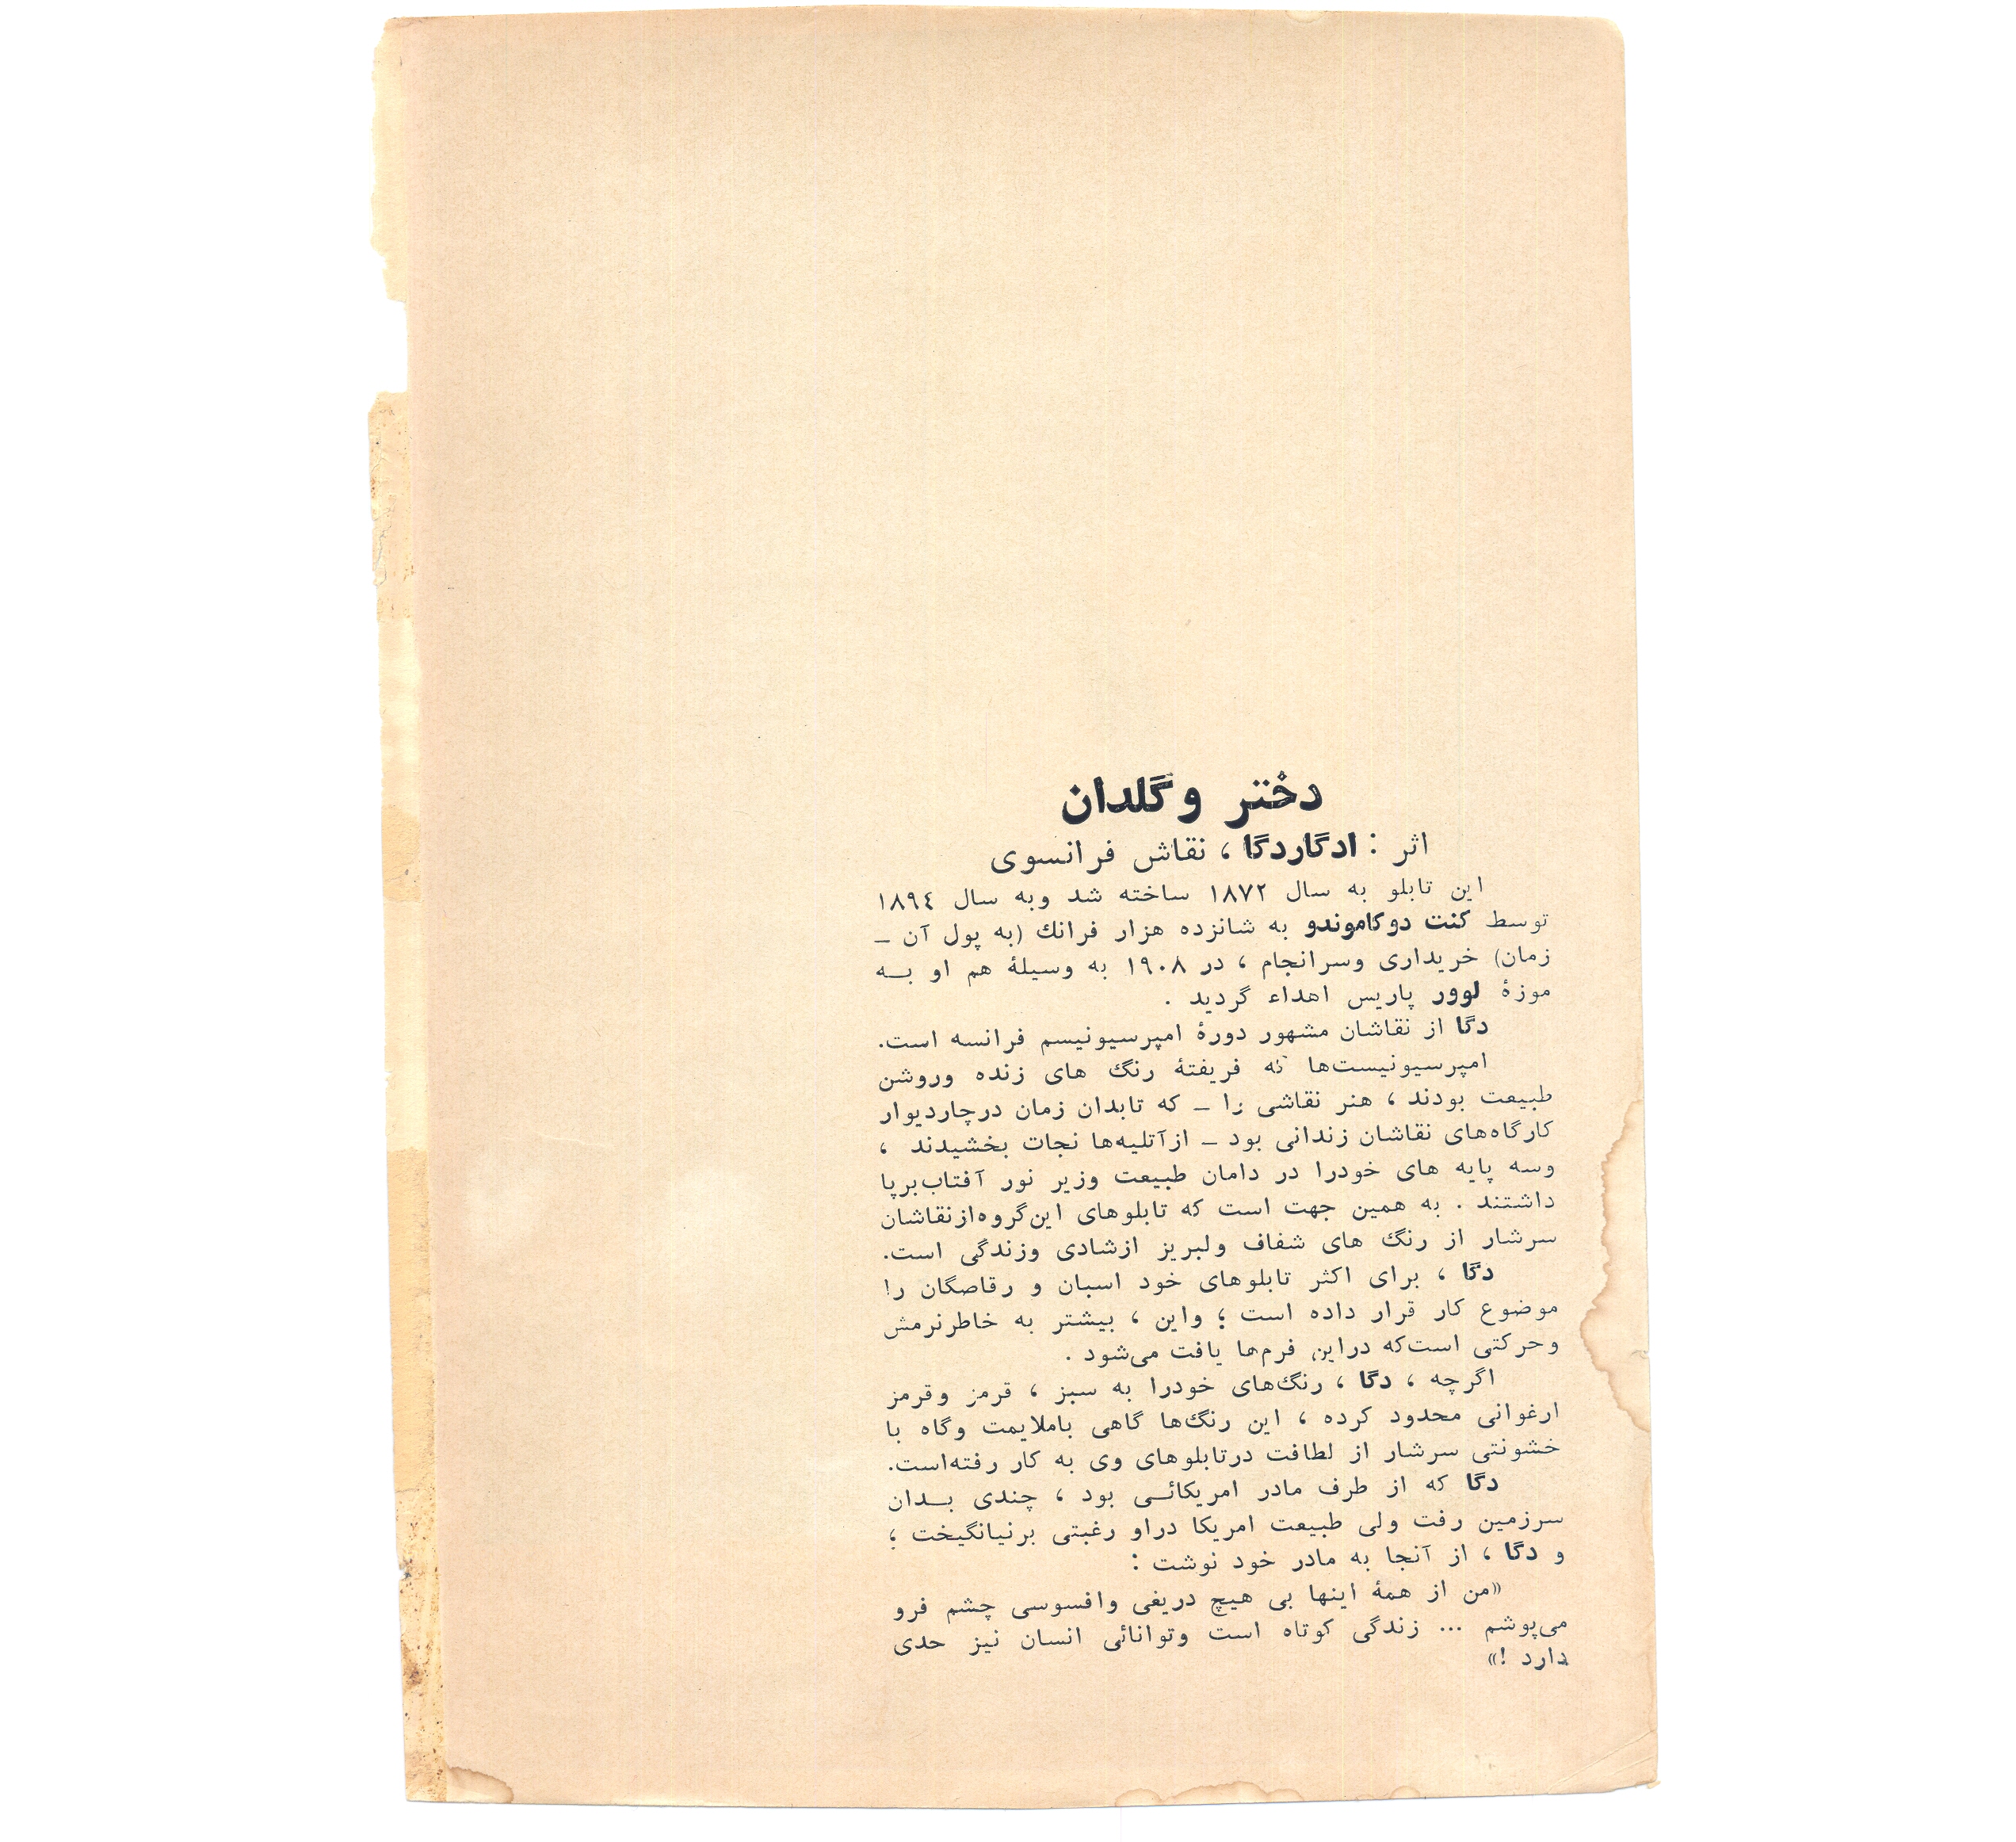 دختر وگلدان
اثر : ادگاردگا ، نقاش فرانسوی
این تابلو به سال ۱۸۷۲ ساخته شد وبه سال ۱۸۹٤
توسط كنت دوكاموندو به شانزده هزار فرانك (به پول آن –
زمان) خریداری وسرانجام ، در ۱۹۰۸ به وسیلهٔ هم او بــه
موزهٔ لوور پاریس اهداء گردید .
دگا از نقاشان مشهور دورهٔ امپرسیونیسم فرانسه است.
امپرسیونیست‌ها که فریفتهٔ رنگ های زنده وروشن
طبیعت بودند ، هنر نقاشی را – که تابدان زمان درچاردیوار
کارگاه‌های نقاشان زندانی بود – ازآتلیه‌ها نجات بخشیدند ،
وسه پایه های خودرا در دامان طبیعت وزیر نور آفتاب‌برپا
داشتند . به همین جهت است که تابلوهای این‌گروه‌ازنقاشان
سرشار از رنگ های شفاف ولبریز ازشادی وزندگی است.
دگا ، برای اکثر تابلوهای خود اسبان و رقاصگان را
موضوع کار قرار داده است ؛ واین ، بیشتر به خاطرنرمش
وحرکتی است‌که دراین فرم‌ها یافت می‌شود .
اگرچه ، دگا ، رنگ‌های خودرا به سبز ، قرمز وقرمز
ارغوانی محدود کرده ، این رنگ‌ها گاهی باملایمت وگاه با
خشونتی سرشار از لطافت درتابلوهای وی به کار رفته‌است.
دگا که از طرف مادر امریکائــی بود ، چندی بــدان
سرزمین رفت ولی طبیعت امریکا دراو رغبتی برنیانگیخت ؛
و دگا ، از آنجا به مادر خود نوشت :
«من از همهٔ اینها بی هیچ دریغی وافسوسی چشم فرو
می‌پوشم ... زندگی کوتاه است وتوانائی انسان نیز حدی
دارد !»